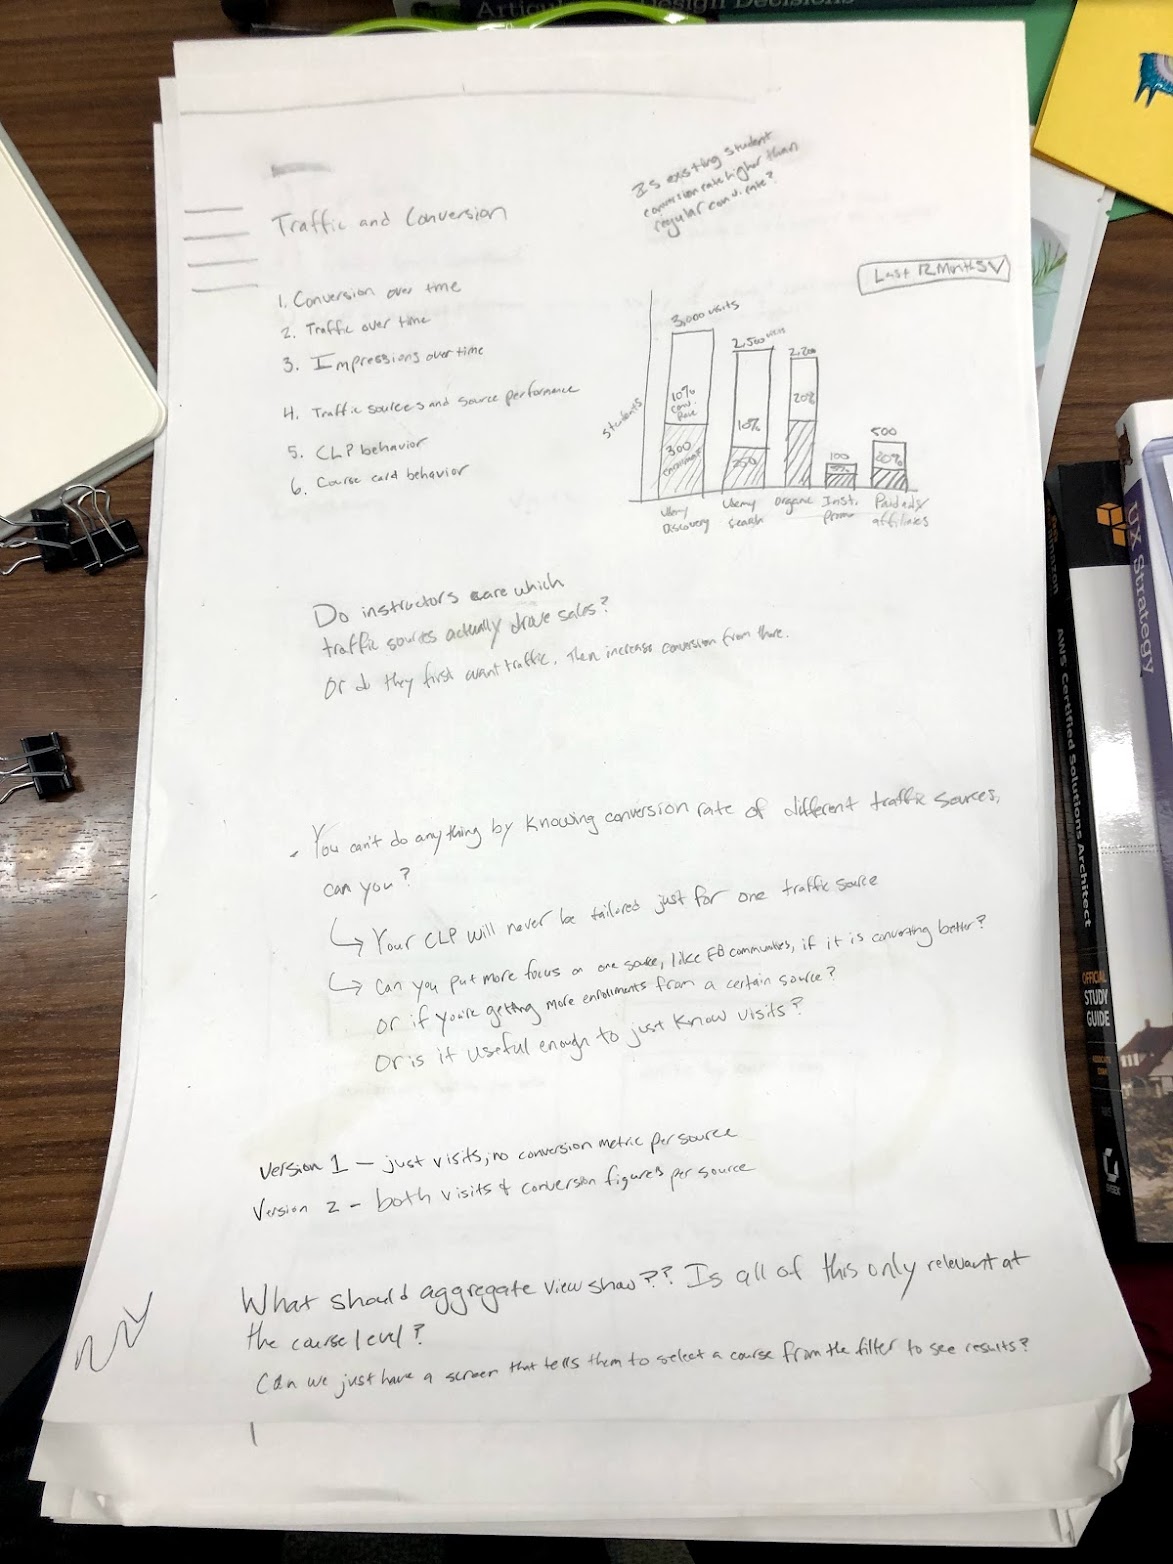 Articul Design Decisions
Is existing student
conversion rate higher than
regular conv. rate?
Traffic and Conversion
Last 12 Months
1. Conversion over time
2. Traffic over time
3. Impressions over time
4. Traffic sources and source performance
5. CLP behavior
6. Course card behavior
students
3,000 visits
10%
conv.
Rate
300
2,500 visits
10%
250
2,200
20%
100
500
20%
Udemy
Discovery
Udemy
Search
organic
Inst.
Promo
Paid ads/
affiliates
Do instructors care which
traffic sources actually drive sales?
Or do they first want traffic. Then increase conversion from there.
You can't do anything by knowing conversion rate of different traffic sources,
can you?
Your CLP will never be tailored just for one traffic source
Can you put more focus on one source, like FB communities, if it is converting better?
or if you're getting more enrollments from a certain source?
Or is it useful enough to just know visits?
Version 1 - just visits, no conversion metric per source
Version 2 - both visits & conversion figures per source
What should aggregate view show?? Is all of this only relevant at
the course level?
Can we just have a screen that tells them to select a course from the filter to see results?
UX Strategy
amazon
AWS Certified Solutions Architect
OFFICIAL
STUDY
GUIDE
ASSOCIATE
EXAM
SYBEX